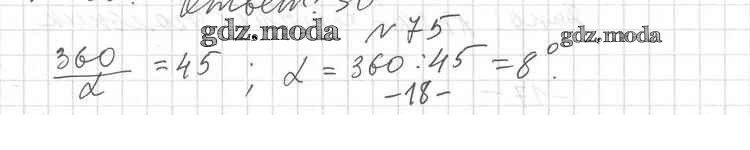 Ответ: 30
gdz.moda № 75 gdz.moda
360/α = 45 ; α = 360 : 45 = 8°.
-18-